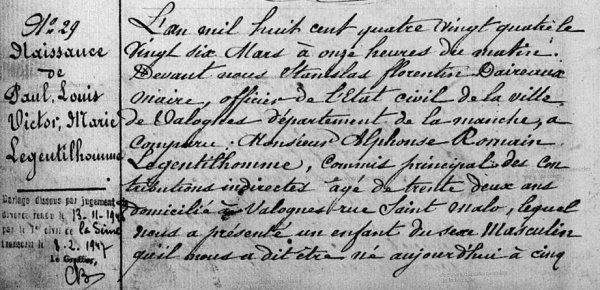 N° 29
Naissance
de
Paul, Louis
Victor, Marie
Legentilhomme
Mariage dissous par jugement
divorce rendu le 13-11-1946
par le T. civil de la Seine
transcrit le 8.2.1947
Le Greffier,
L'an mil huit cent quatre vingt quatre le
vingt six Mars à onze heures du matin.
Devant nous Stanislas florentin Daireaux
maire, officier de l'Etat civil de la ville
de Valognes département de la manche, a
comparu : Monsieur Alphonse Romain
Legentilhomme, commis principal des con
tributions indirectes âgé de trente deux ans
domicilié à Valognes rue Saint Malo, lequel
nous a présenté un enfant du sexe Masculin
qu'il nous a dit être né aujourd'hui à cinq